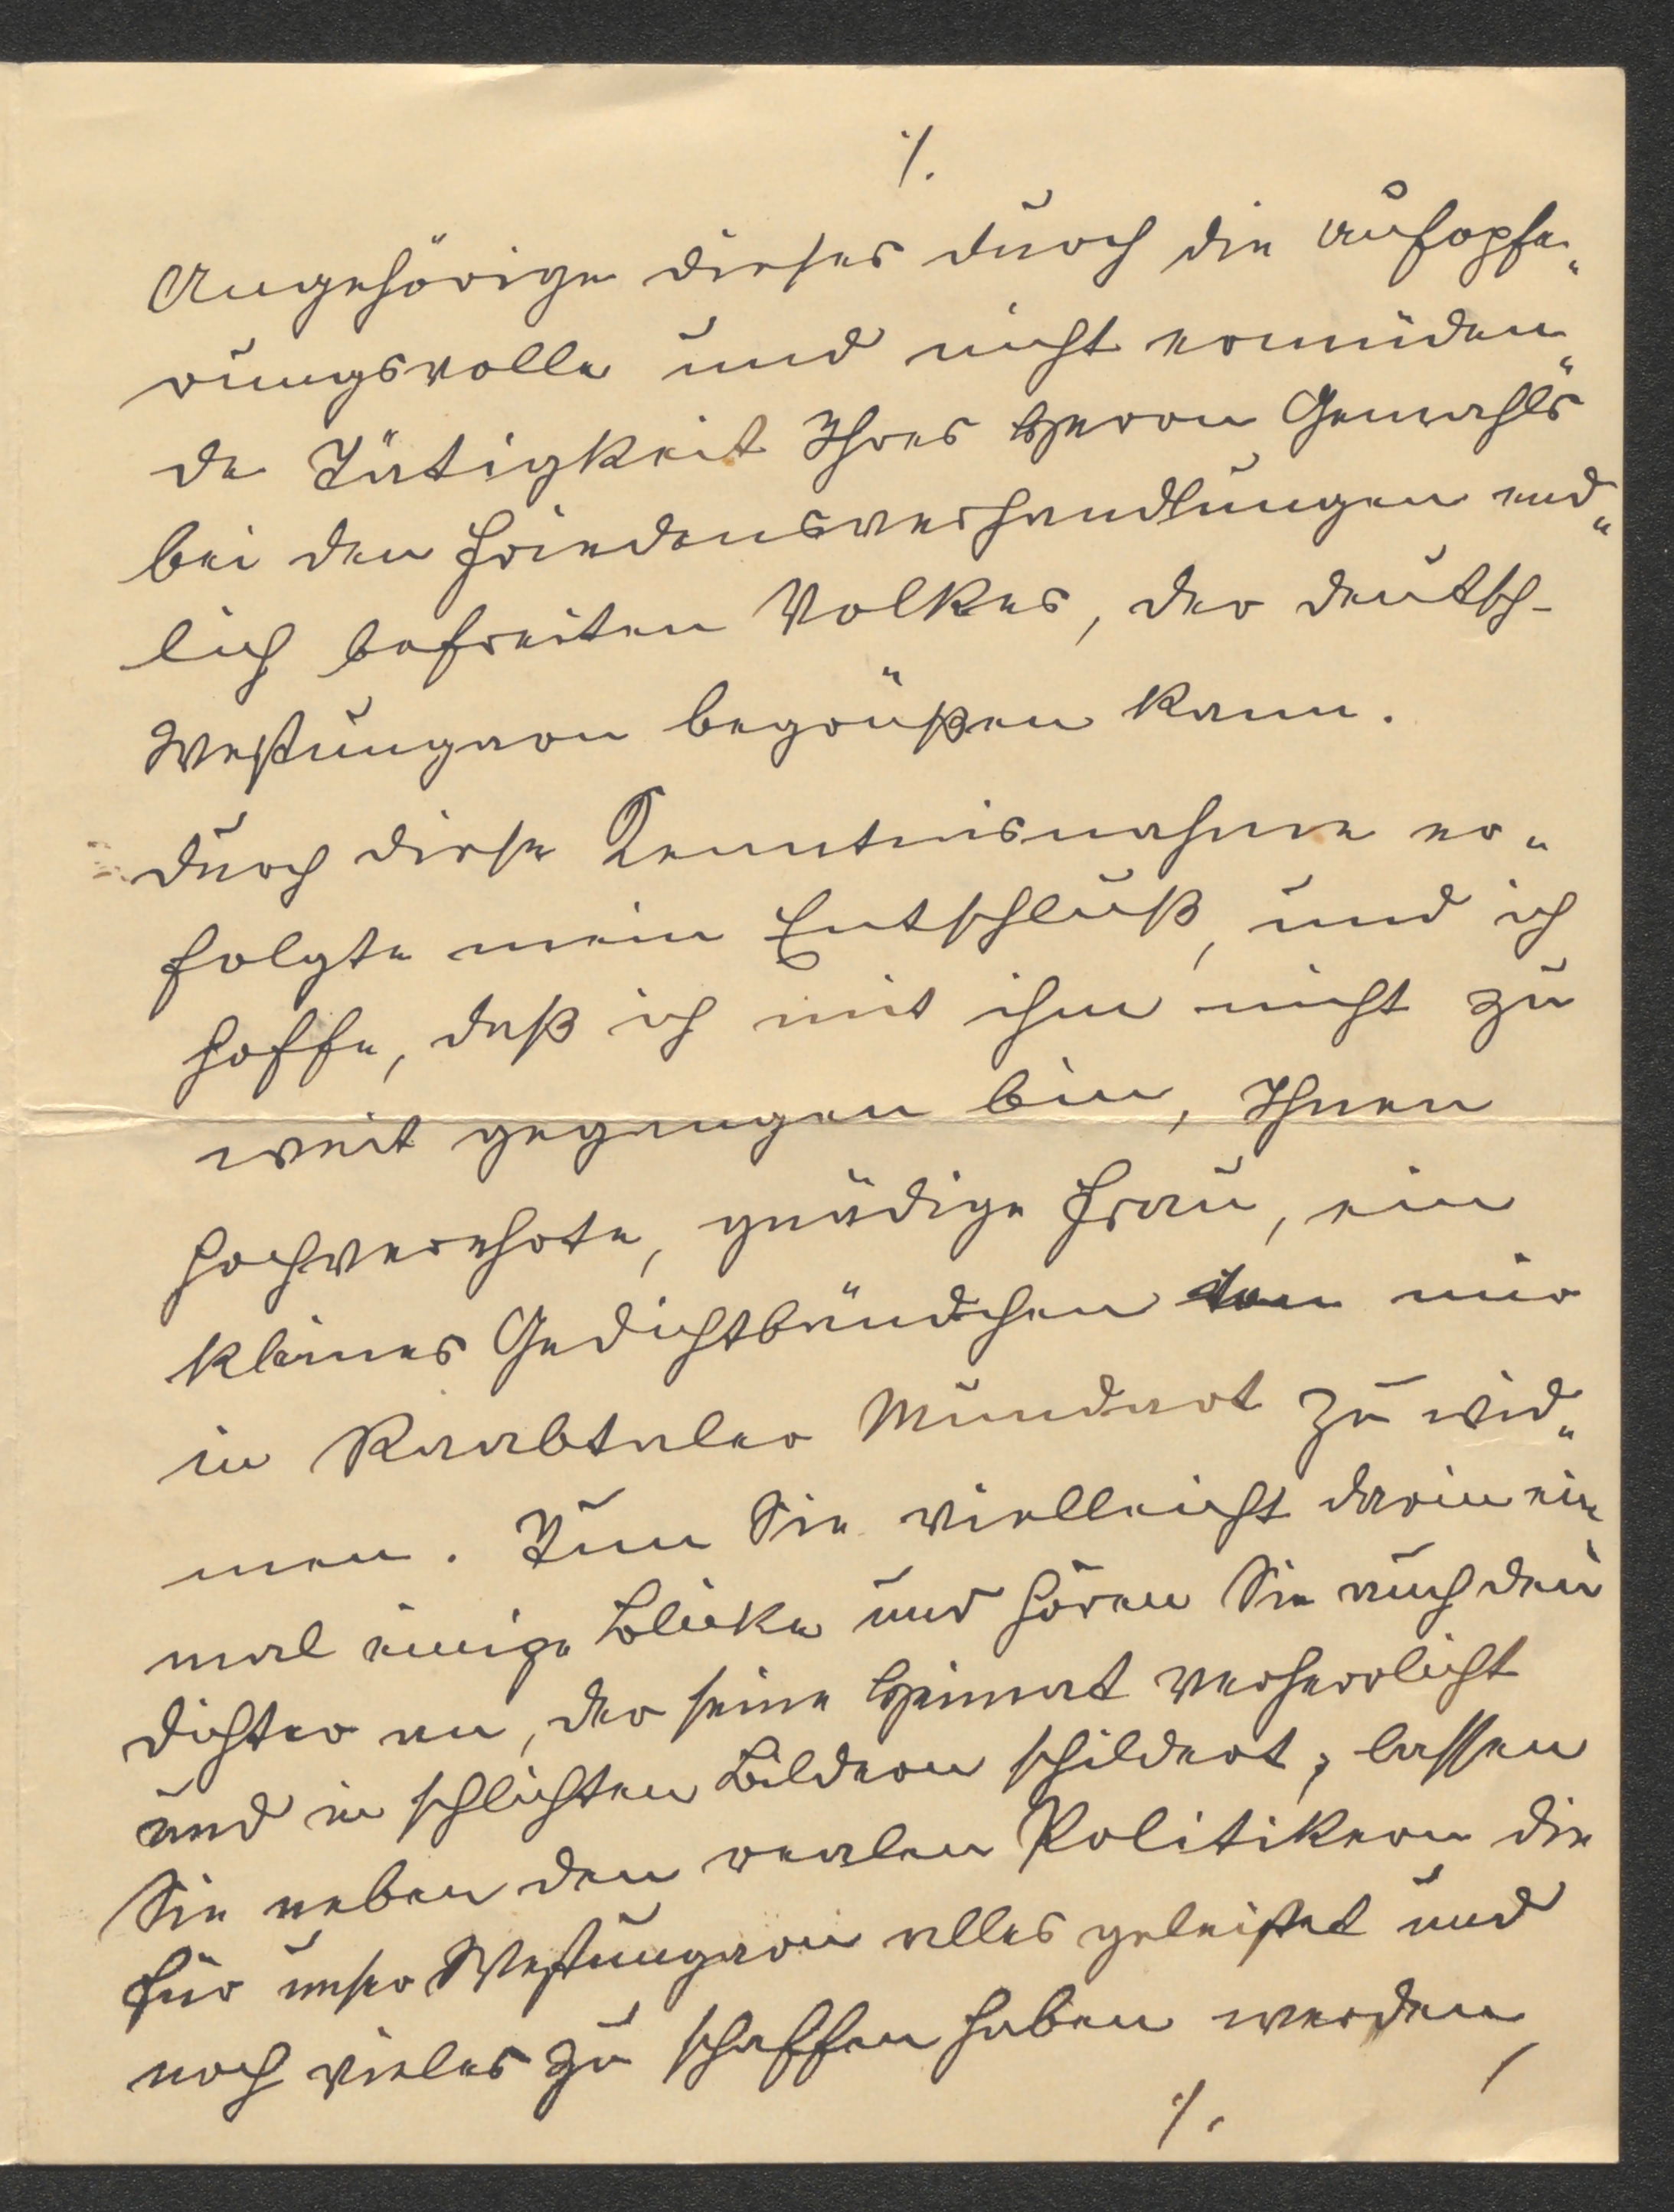 ./.
Angehörige dieses durch die aufopfe„
rungsvolle und nicht ermüden„
de Tätigkeit Ihres Herrn Gemahls
bei den Friedensverhandlungen end„
lich befreiten Volkes, der deutsch-
Westungarn begrüßen kann.
Durch diese Kenntnisnahme er„
folgte mein Entschluß, und ich
hoffe, daß ich mit ihm nicht zu
weit gegangen bin, Ihnen
hochverehrte, gnädige Frau, ein
kleines Gedichtbändchen von mir
in Raabtaler Mundart zu wid„
men. Tun Sie vielleicht darin ein„
mal einige Blicke und hören Sie auch den
Dichter an, der seine Heimat verherrlicht
und in schlichten Bildern schildert; lassen
Sie neben den realen Politikern die
für unser Westungarn alles geleistet und
noch vieles zu schaffen haben werden,
./.